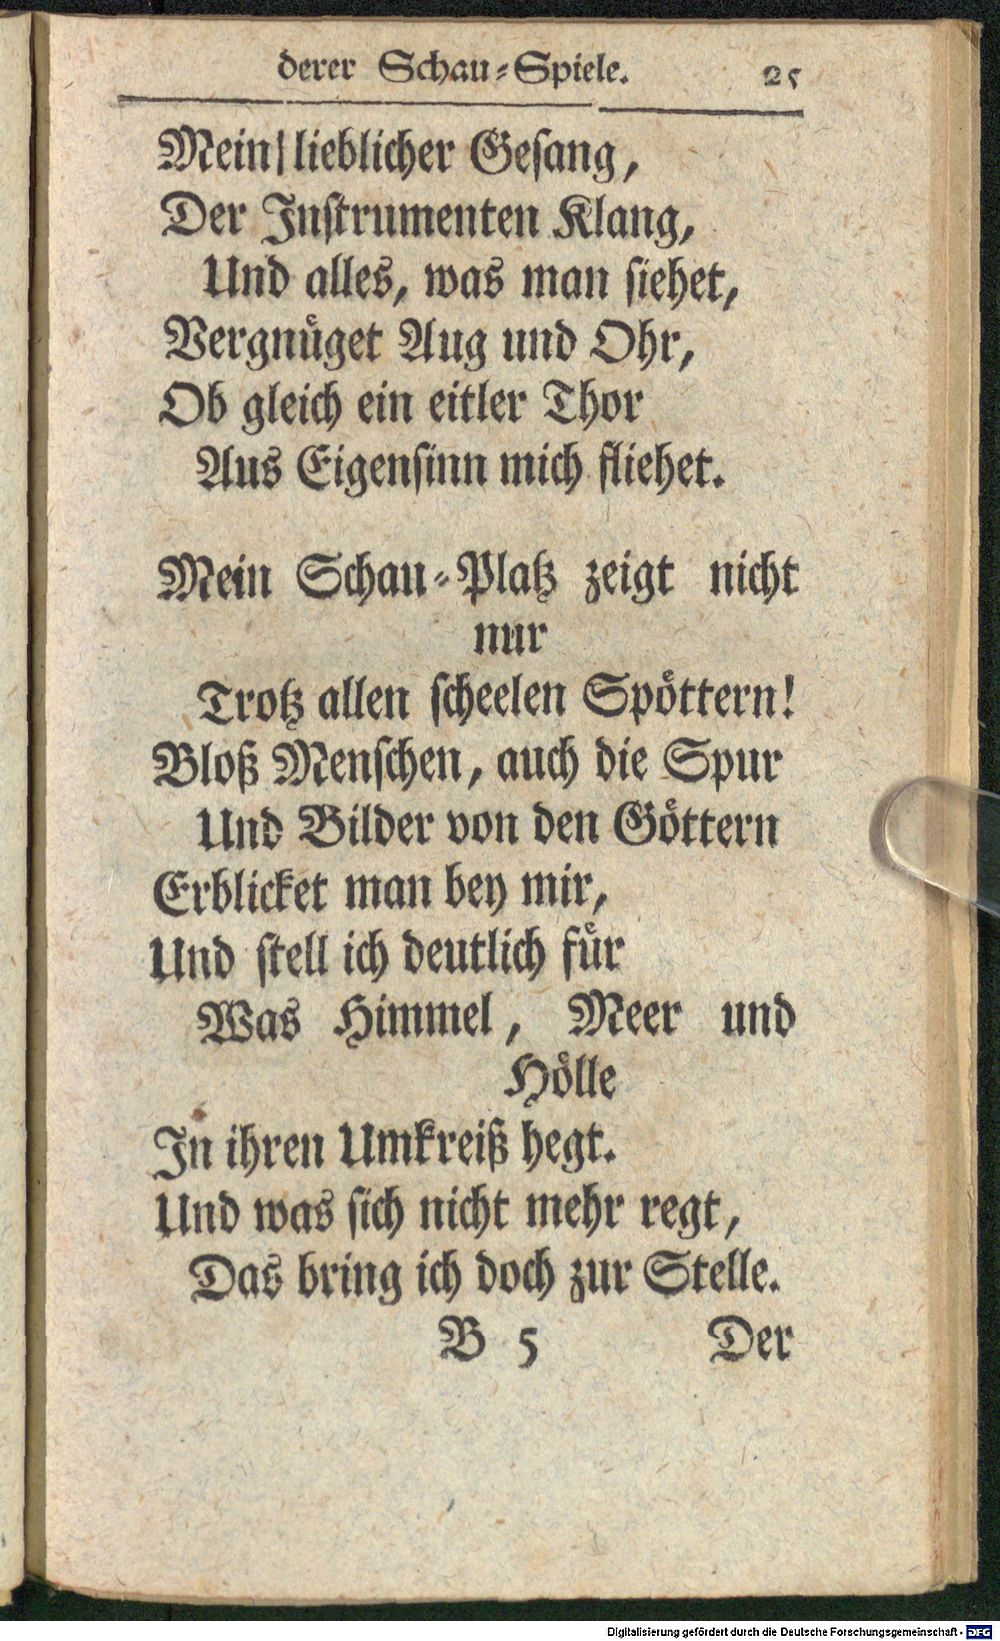 derer Schau-Spiele. 25
Mein lieblicher Gesang,
Der Instrumenten Klang,
Und alles, was man siehet,
Vergnüget Aug und Ohr,
Ob gleich ein eitler Thor
Aus Eigensinn mich fliehet.
Mein Schau-Platz zeigt nicht
nur
Trotz allen scheelen Spöttern!
Bloß Menschen, auch die Spur
Und Bilder von den Göttern
Erblicket man bey mir,
Und stell ich deutlich für
Was Himmel, Meer und
Hölle
In ihren Umkreiß hegt.
Und was sich nicht mehr regt,
Das bring ich doch zur Stelle.
B 5 Der
Digitalisierung gefördert durch die Deutsche Forschungsgemeinschaft - DFG